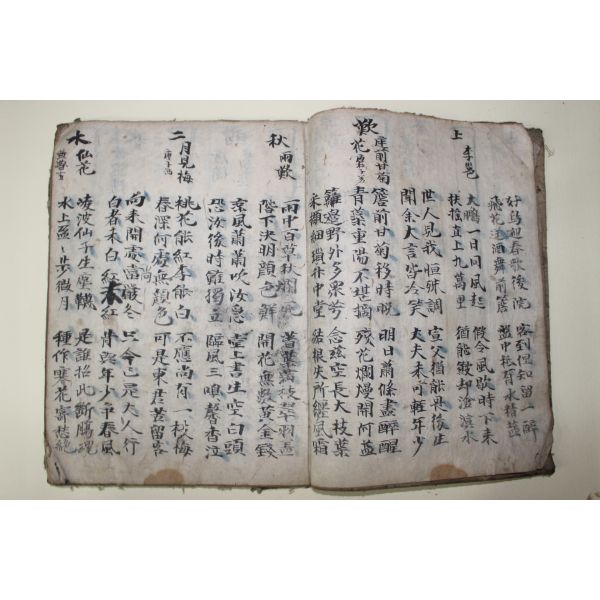 好鳥迎春歌後院 客到但知留一醉
飛花送酒舞前簷 盤中祗有水精鹽
上李邕
大鵬一日同風起 假令風歇時下來
扶搖直上九萬里 猶能簸却滄溟水
世人見我恒殊調 宣父猶能畏後生
聞余大言皆冷笑 丈夫未可輕年少
歎庭前甘菊花
簷前甘菊移時晚 明日蕭條盡醉醒
青蘂重陽不堪摘 殘花爛熳開何益
籬邊野外多衆芳 念玆空長大枝葉
采擷細瑣升中堂 結根失所纏風霜
秋雨歎
雨中百草秋爛死 着葉滿枝翠羽盖
階下決明顏色鮮 開花無數黃金錢
凉風蕭蕭吹汝急 堂上書生空白頭
恐汝後時難獨立 臨風三嗅馨香泣
二月見梅 唐子西
桃花能紅李能白 不應尚有一枝梅
春深何處無顏色 可是東君苦留客
尚
向來開處當嚴冬 只今已是丈人行
白者未白紅未紅 肯與年少爭春風
水仙花 黃魯直
凌波仙子生塵襪 是誰招此斷腸魂
水上盈〻步微月 種作寒花寄愁絶